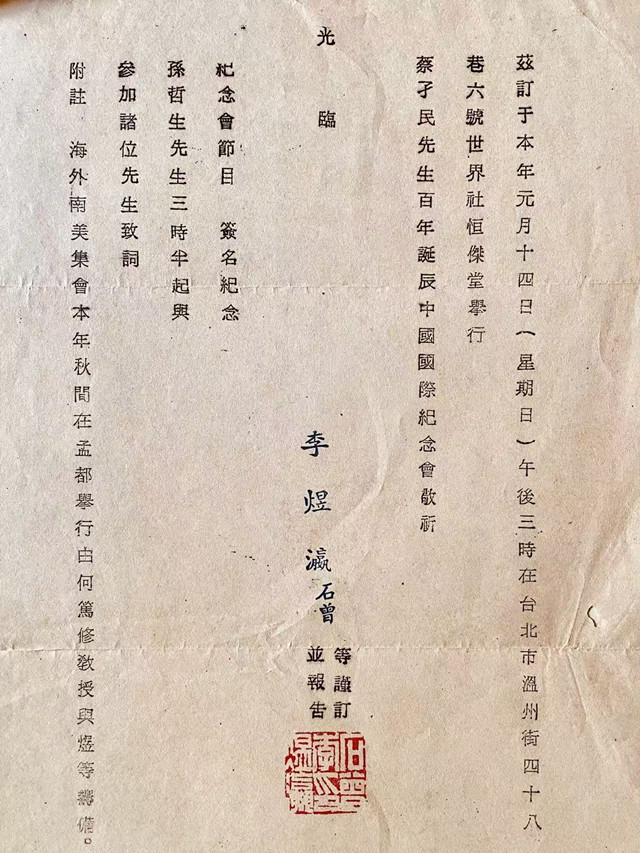 茲訂于本年元月十四日(星期日)午後三時在台北市溫州街四十八
巷六號世界社恒傑堂舉行
蔡孑民先生百年誕辰中國國際紀念會敬祈
光臨
李煜瀛石曾
等謹訂
並報告
石曾
李印
煜瀛
紀念會節目 簽名紀念
孫哲生先生三時半起與
參加諸位先生致詞
附註 海外南美集會本年秋間在孟都舉行由何篤修教授與煜等籌備。